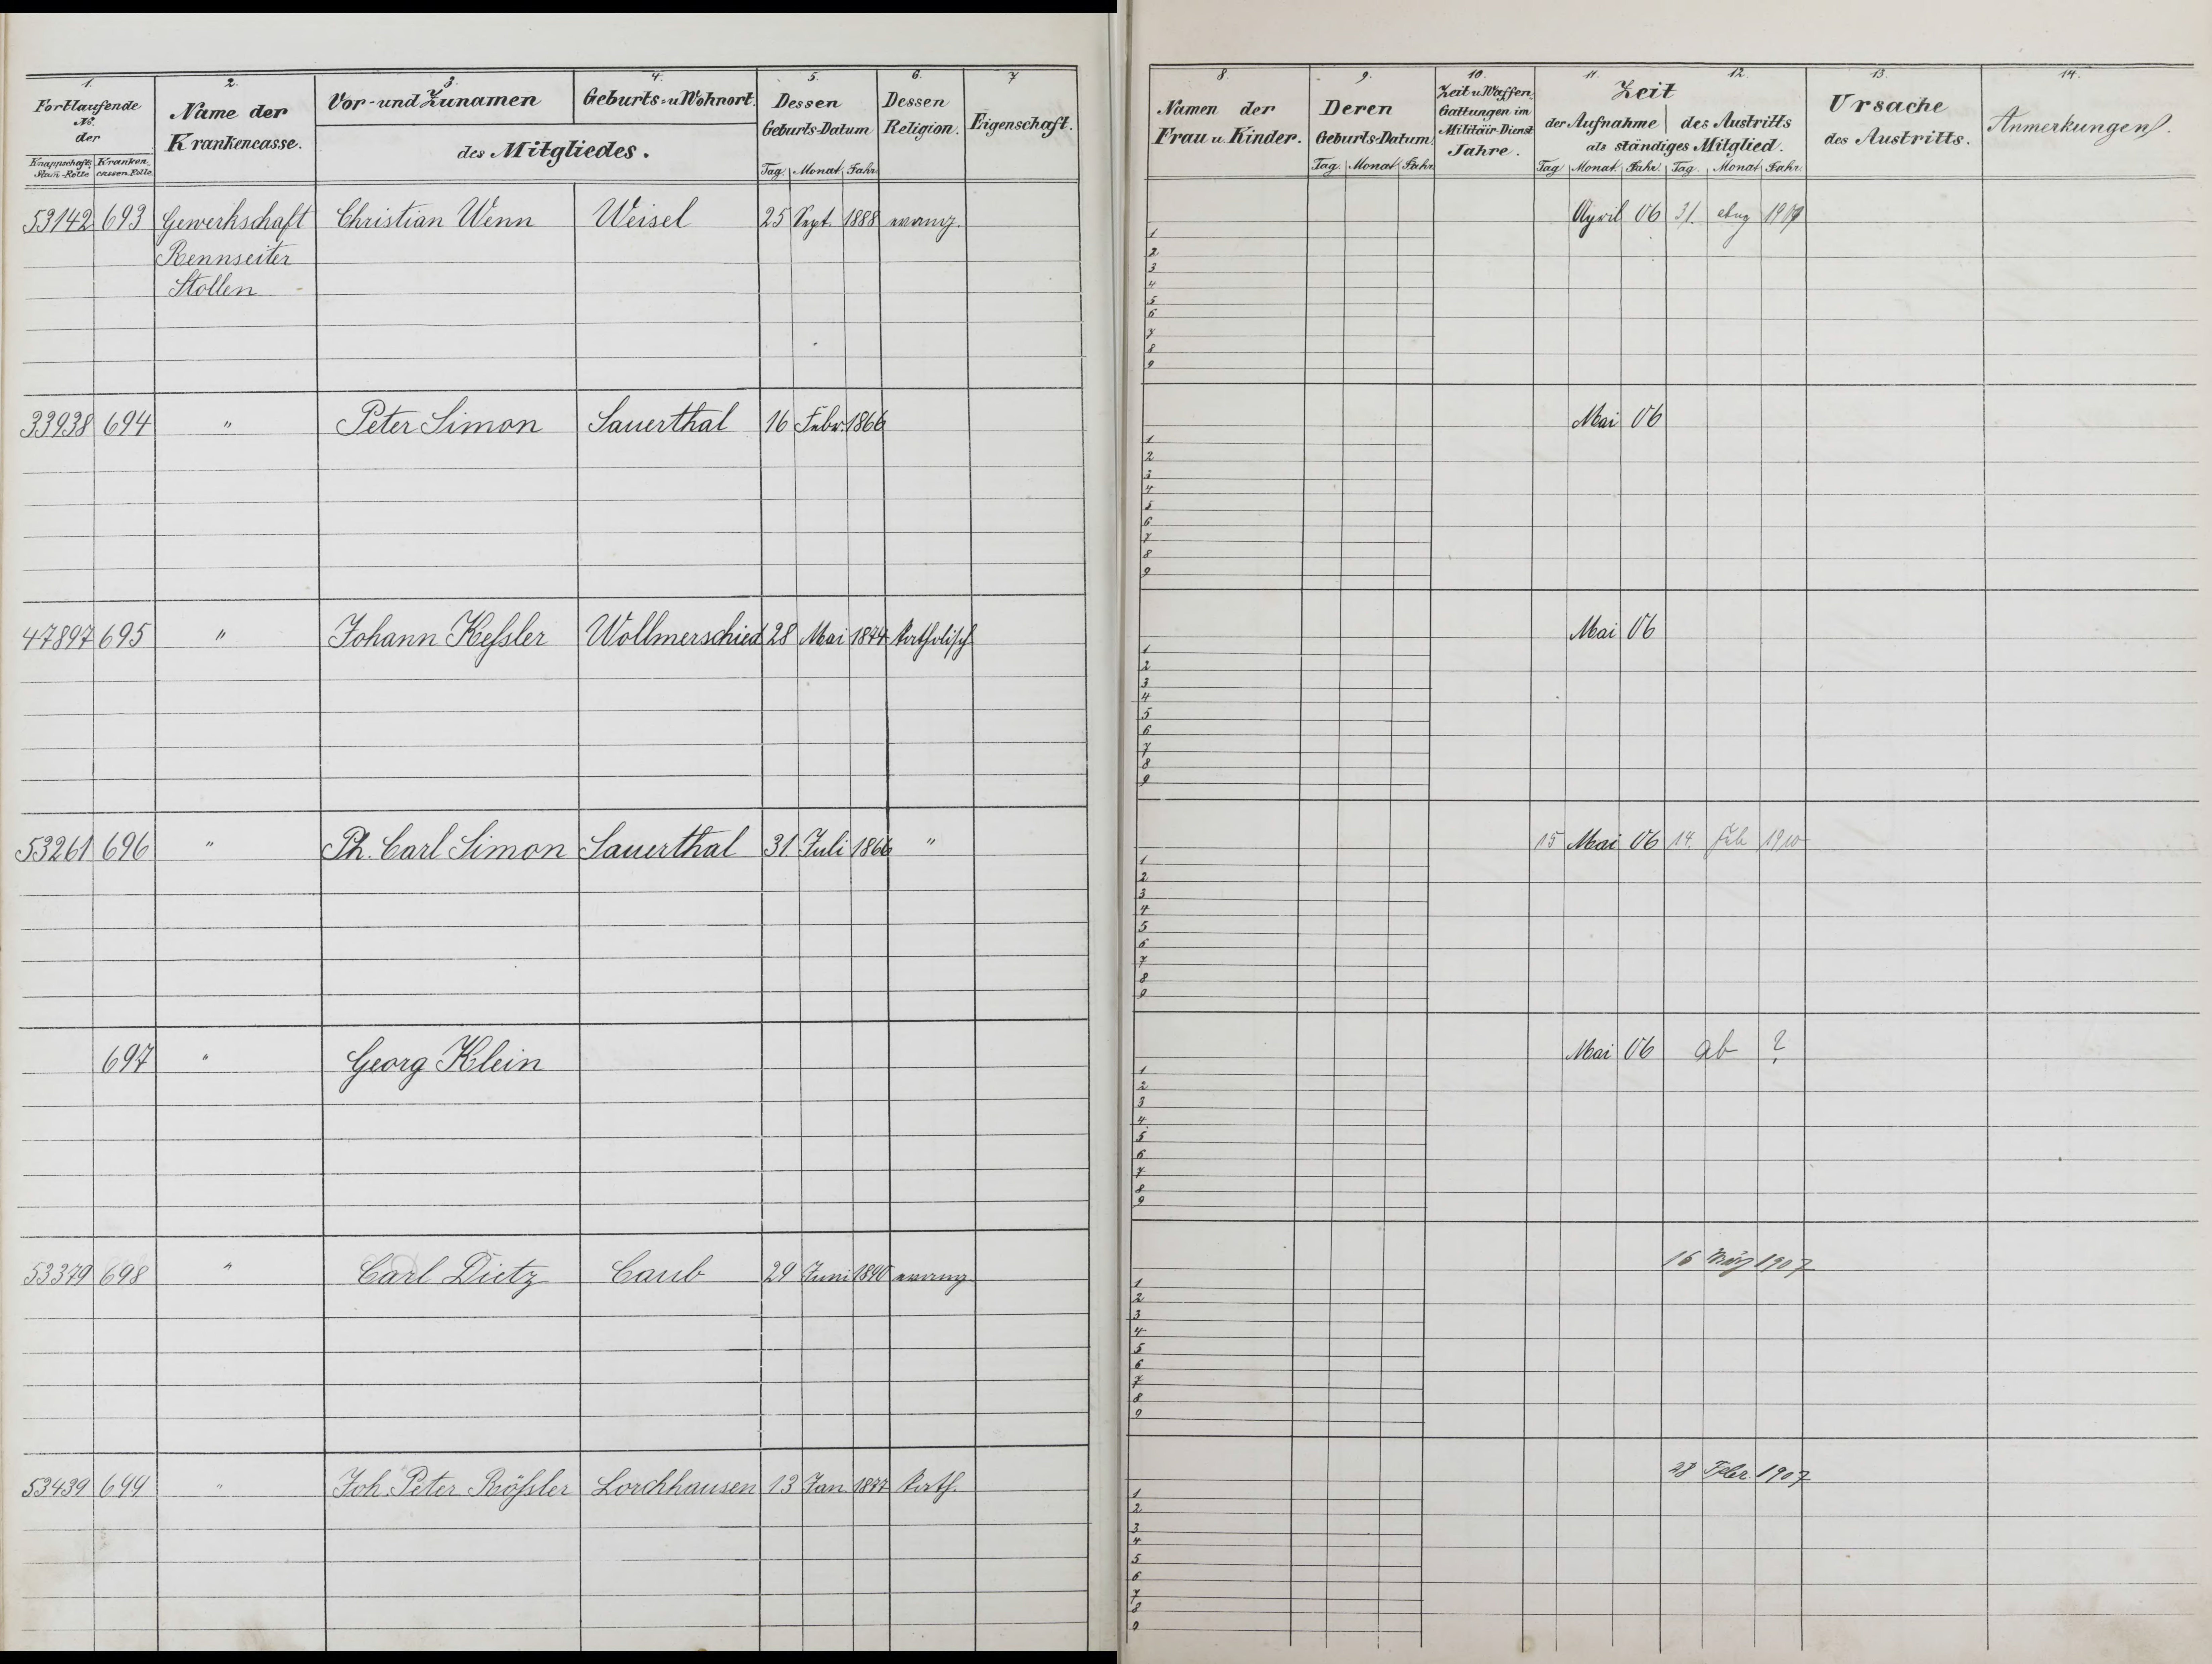 1. 2. 3. 4. 5. 6. 7
Fortlaufende No. der
Knappschafts Stam-Rolle Kranken cassen-Rolle
Name der Krankencasse.
Vor- und Zunamen Geburts- u. Wohnort.
des Mitgliedes.
Dessen Geburts-Datum
Tag. Monat Jahr.
Dessen Religion.
Eigenschaft.
53142 693 Gewerkschaft Christian Wenn Weisel 25 Sept. 1888 evang.
Rennseiter
Stollen
33938 694 " Peter Simon Sauerthal 16 Febr. 1866
47897 695 " Johann Keſsler Wollmerschied 28 Mai 1874 katholisch
53261 696 " Ph. Carl Simon Sauerthal 31. Juli 1866 "
697 " Georg Klein
53379 698 " Carl Dietz Caub 29 Juni 1890 evang
53439 699 " Joh. Peter Röſsler Lorchhausen 13 Jan. 1877 kath.
8. 9. 10. 11. 12. 13. 14.
Namen der Frau u. Kinder.
Deren Geburts-Datum.
Tag. Monat Jahr.
Zeit u. Waffen Gattungen im Militär-Dienst Jahre.
Zeit
der Aufnahme des Austritts
als ständiges Mitglied.
Tag Monat. Jahr. Tag. Monat Jahr.
Ursache des Austritts.
Anmerkungen.
April 06 31. Aug
1
2
3
4
5
6
7
8
9
Mai 06
1
2
3
4
5
6
7
8
9
Mai 06
1
2
3
4
5
6
7
8
9
15 Mai 06 14. Feb 1910
1
2
3
4
5
6
7
8
9
Mai 06 ab ?
1
2
3
4
5
6
7
8
9
16 März 1907
1
2
3
4
5
6
7
8
9
28 Febr. 1907
1
2
3
4
5
6
7
8
9